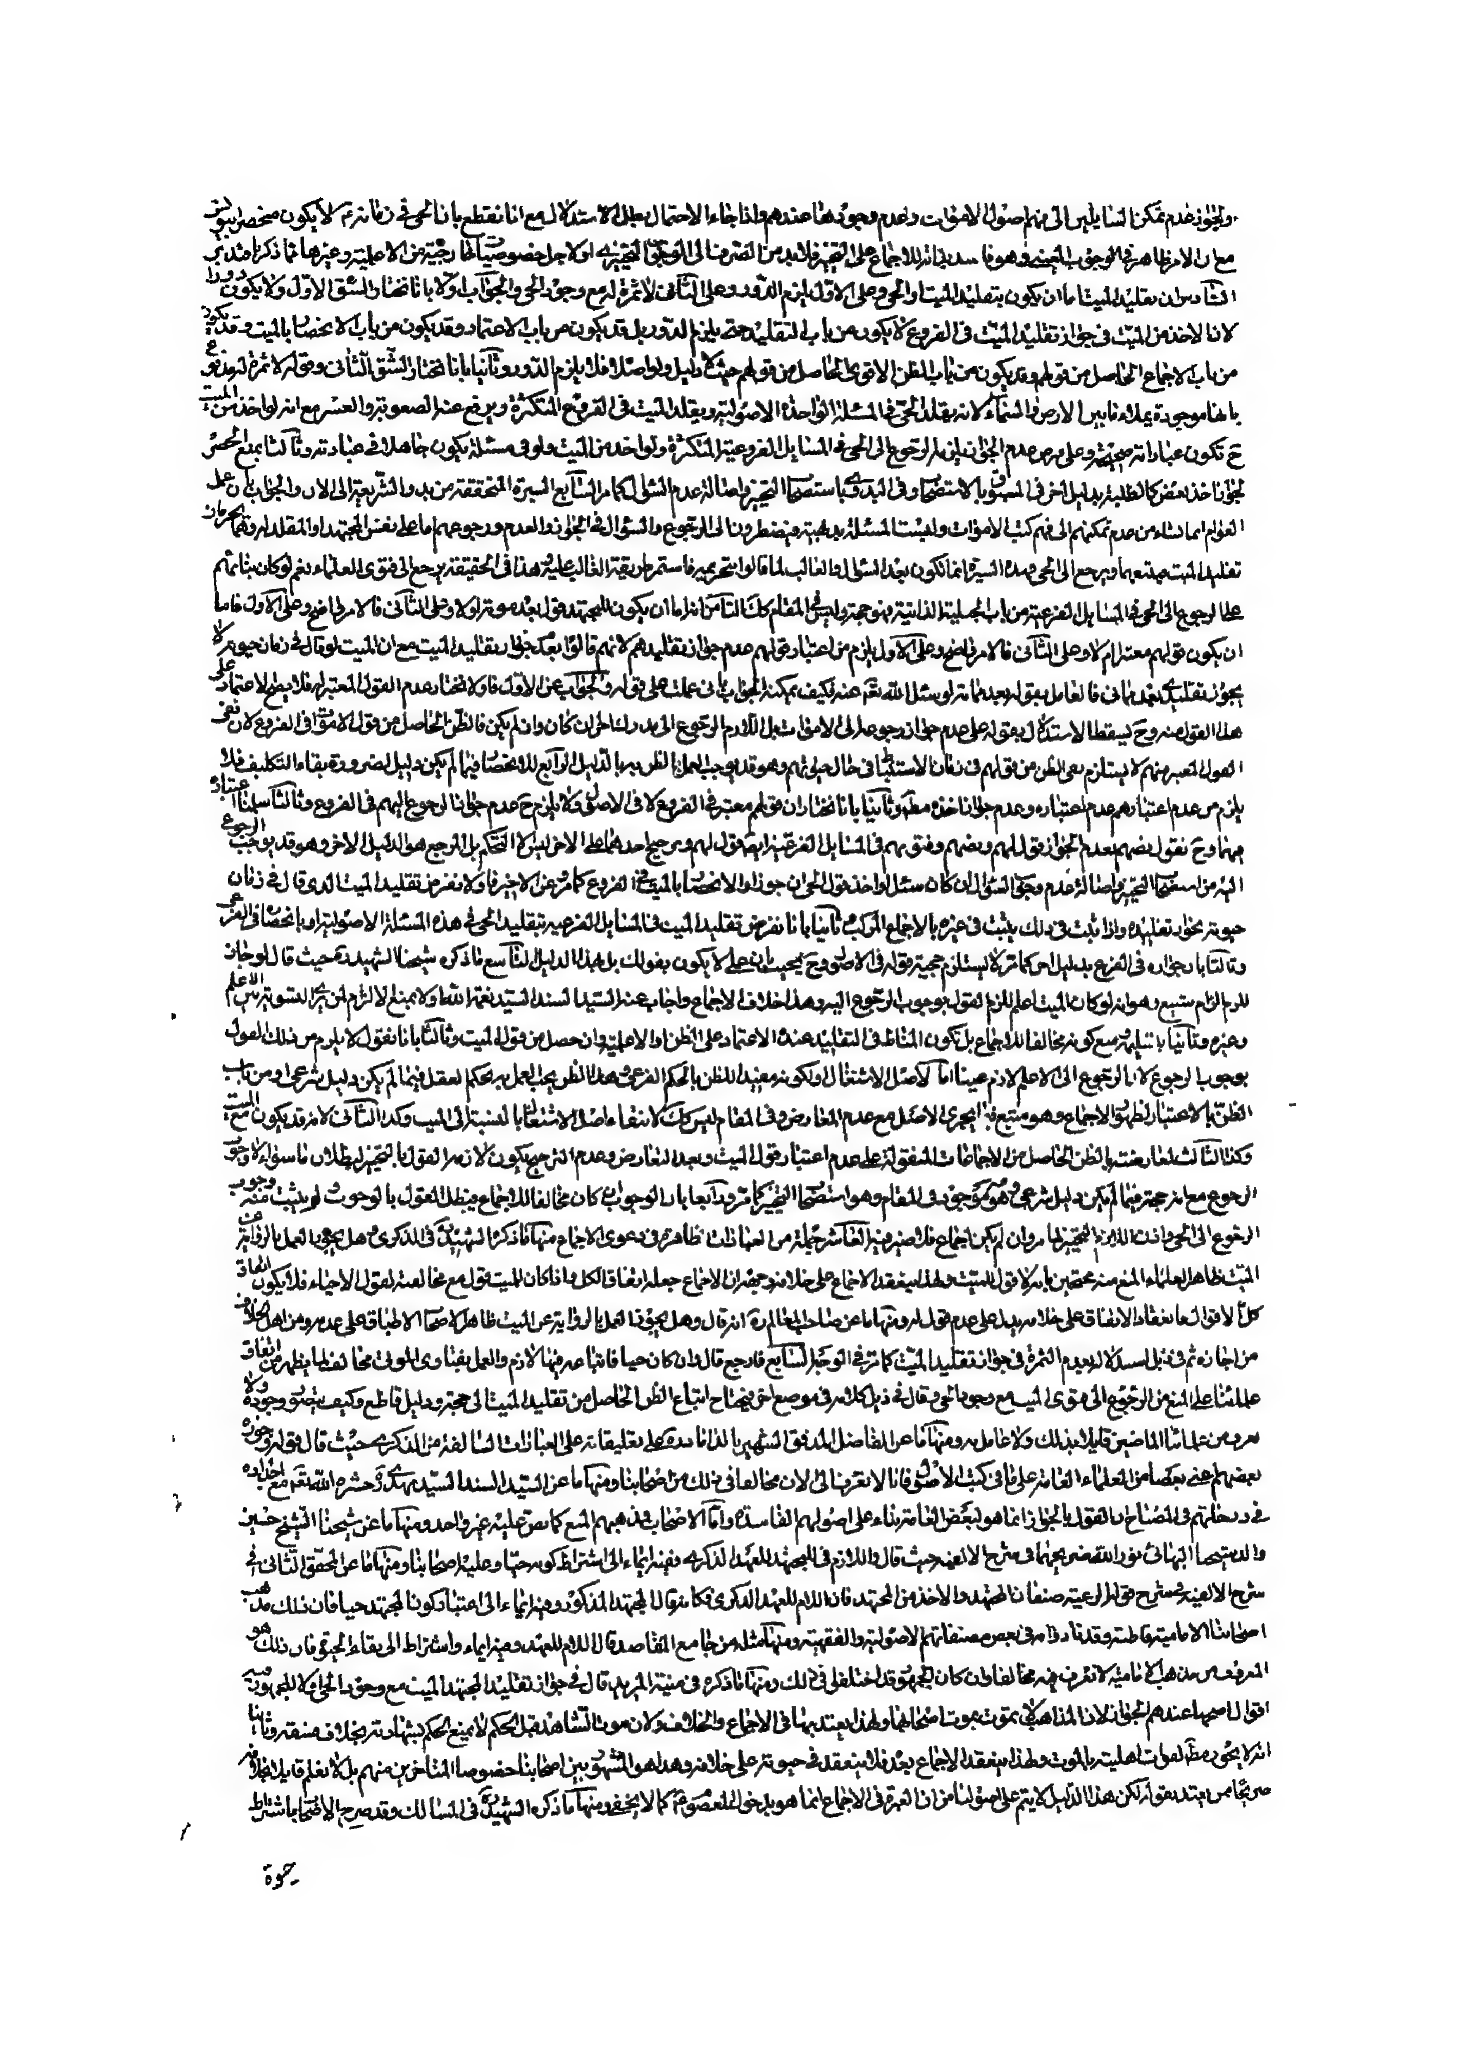 والجواز عدم تمكن السايلين الى فهم اصول الاموات وعدم وجودها عندهم واذا جاء الاحتمال بطل الاستدلال مع انا نقطع بان الحى فى زمانه لا يكون منحصرا
مع ان الامر ظاهر فى الوجوب العينى وهو فاسد للاجماع على التخيير فلا بد من الصرف الى الوجوب التخييرى او لاجل خصوصيات خارجية من الاعلمية وغيرها مما ذكرا
السادس ان تقليد الميت اما ان يكون بتقليد الميت او الحى وعلى الاول لزم الدور وعلى الثانى لا ثمرة له مع وجود الحى والجواب اولا بانا نختار الشق الاول ولا يكون دورا
لان الاخذ من الميت فى جواز تقليد الميت فى الفروع لا يكون من باب التقليد حتى يلزم الدور بل قد يكون من باب الاحتياط وقد يكون من باب الانحصار بالميت وقد يكون
من باب الاجماع الحاصل من قولهم وقد يكون من باب الظن الاقوى الحاصل من قولهم حيث لا دليل ولا اصل فلا يلزم الدور وثانيا بانا نختار الشق الثانى وقوله لا ثمرة له مدفوع
بانها موجودة يملاء ما بين الارض والسماء لانه يقلد الحى فى المسئلة الواحدة الاصولية ويقلد الميت فى الفروع المتكثرة ويرفع عنه الصعوبة والعسر مع انه لو اخذ من الميت
ح تكون عباداته صحيحة وعلى فرض عدم الجواز يلزم الرجوع الى الحى فى المسايل الفروعية المتكثرة ولو اخذ من الميت ولو فى مسئلة يكون جاهلا فى عبادته وثالثا بمنع الحصر
لجواز اخذ بعض كالطلبة بدليل اخر فى بالاستصحاب وفى البدوى باستصحاب التخيير واصالة عدم السؤال كما مر السابع السيرة المتحققة من بدو الشريعة الى الان والجواب بان عمل
العوام انما نشاء من عدم تمكنهم الى فهم كتب الاموات وليست المسئلة بديهية فيضطرون الى الرجوع والسؤال فى الجواز والعدم ورجوعهم اما على نفس المجتهد او المقلد له وهما يحرمان
تقليد الميت فيتبعهما ويرجع الى الحى وهذه السيرة انما تكون بعد السؤال والغالب لما قالوا بتحريمه فاستمر طريقة الغالب عليه هذا فى الحقيقة يرجع الى فتوى العلماء نعم لو كان بنائهم
على الرجوع الى الحى فى المسايل الفرعية من باب الجبلية الذاتية فهو حجة وليس فى المقام كك الثامن انه اما ان يكون للمجتهد قول بعد موته او لا وعلى الثانى فالامر واضح وعلى الاول فاما
ان يكون قولهم معتبرا ام لا وعلى الثانى فالامر واضح وعلى الاول يلزم من اعتبار قولهم عدم جواز تقليدهم لانهم قالوا بعدم جواز تقليد الميت مع ان الميت لو قال فى زمان حيوته لا
يجوز تقليدى بعد مماتى فالعامل بقوله بعد مماته لو سئل الله تعه عنه فكيف يمكنه الجواب بانى عملت على قوله والجواب عن الاول فاولا نختار عدم القول المعتبر له فلا يصح الاعتماد على
هذا القول منه وح يسقط الاستدلال بقوله على عدم جواز رجوعه الى الاموات بل اللازم الرجوع الى مدرك اخر ان كان وان لم يكن فالظن الحاصل من قول الاموات فى الفروع لان نفى
القول المعتبر منهم لا يستلزم نفى الظن من قولهم فى زمان الاستنباط فى حال حيوتهم وهو قد يوجب العمل بالظن بالدليل الرابع للانحصار فيما لم يكن دليل لضرورة بقاء التكليف فلا
يلزم من عدم اعتبارهم عدم اعتباره وعدم جواز اخذه مط وثانيا بانا نختار ان قولهم معتبر فى الفروع لا فى الاصول ولا يلزم ح عدم جواز الرجوع اليهم فى الفروع وثالثا سلمنا اعتباره
فيهما وح نقول بعضهم بعدم الجواز قول لهم وبعضهم وفتويهم فى المسايل الفرعية ايضا قول لهم وترجيح احدهما على الاخر ليس الا التحكم بل المرجع هو الدليل الاخر وهو قد يوجب الرجوع
اليه من استصحاب التخيير واصالة عدم وجوب السؤال ان كان سئل او اخذ قول الحى ان جوز او الانحصار بالميت فى الفروع كما مر وعن الاخير فاولا نفرض تقليد الميت الذى قال فى زمان
حيوته بجواز تقليده واذا ثبت فى ذلك يثبت فى غيره بالاجماع المركب وثانيا بانا نفرض تقليد الميت فى المسايل الفرعية بتقليد الحى فى هذه المسئلة الاصولية او بانحصاره فى الفرعى
وثالثا بان جوازه فى الفرع بدليل اخر كما مر لا يستلزم حجية قوله فى الاصول وح يجيب بانى عملى لا يكون بقولك بل بهذا الدليل التاسع ما ذكره شيخنا الشهيد ره حيث قال لو جاز
للزم الزام شنيع وهو انه لو كان الميت اعلم للزم القول بوجوب الرجوع اليه وهذا خلاف الاجماع واجاب عنه السيد السند السيد نعمة الله اولا بمنع الالزام لمن يرى التسوية بين الاعلم
وغيره وثانيا بتسليمه ومنع كونه مخالفا للاجماع بل تكون المناط فى التقليد عنده الاعتماد على الظن او الاعلمية وان حصل من قول الميت وثالثا بانا نقول لا يلزم من ذلك القول
بوجوب الرجوع لان الرجوع الى الاعلم لازم عينا اما لاصل الاشتغال او لكونه مفيدا للظن بالحكم الفرعى وهذا الظن يجب العمل به بحكم العقل فيما لم يكن دليل شرعى او من باب
الظن بالاعتبار لظهور الاجماع وهو متبع فيما يجرى الاصل مع عدم المعارض وفى المقام ليس كك لانتفاء اصل الاشتغال بالنسبة الى الميت وكذا الثانى لانه قد يكون مع الميت
وكذا الثالث لمعارضته بالظن الحاصل من الاجماعات المنقولة على عدم اعتبار قول الميت وبعد التعارض وعدم الترجيح يكون لازمه القول بالتخيير لبطلان ما سواه لا وجوب
الرجوع مع انه حجة فيما لم يكن دليل شرعى وهو موجود فى المقام وهو استصحاب التخيير كما مر ورابعا بان الوجوب ان كان مخالفا للاجماع فيبطل القول بالوجوب لو يثبت منه وجوب
الرجوع الى الحى واذن اللازم التخيير لما مر وان لم يكن اجماع فلا ضير فيه العاشر جملة من العبارات ظاهرة فى دعوى الاجماع منها ما ذكره الشهيد ره فى الذكرى وهل يجوز العمل بالرواية عن
الميت ظاهر العلماء المنع منه محتجين بانه لا قول للميت ولهذا ينعقد الاجماع على خلافه وجه ان الاجماع جعله اتفاق الكل واذا كان للميت قول مع مخالفته لقول الاحياء فلا يكون اتفاق
كل الاقوال فانعقاد الاتفاق على خلافه يدل على عدم قول له ومنها ما عن صاحب المعالم ره انه قال وهل يجوز العمل بالرواية عن الميت ظاهر الاصحاب الاطباق على عدمه ومن اهل الخلاف
من اجازه ثم فى ذيل استدلاله بعدم الثمرة فى جواز تقليد الميت كما مر فى الوجه السابع فارجع قال وان كان حيا فاتباعه فيها لازم والعمل بفتاوى الموتى مخالف لما يظهر من اتفاق
علمائنا على المنع من الرجوع الى فتوى الميت مع وجود الحى وقال فى ذيل كلامه فى موضع اخر يحتاج اتباع الظن الحاصل من تقليد الميت الى حجة ودليل قاطع وكيف يتصور وجوده ولا
نعرف من علمائنا الماضين قايلا بذلك ولا عاملا به ومنها ما عن الفاضل المدقق الشهير بالداماد ره على تعليقاته على العبارات السالفة من الذكرى حيث قال قوله وجوزه
بعضهم يعنى بعضا من العلماء العامة على ما فى كتب الاصول فانا لا نعرف الى الان مخالفا فى ذلك من اصحابنا ومنها ما عن السيد السند السيد مهدى ره حشره الله تعه مع اجداده
فى درجاتهم فى المصابيح القول بالجواز انما هو لبعض العامة بناء على اصولهم الفاسدة واما الاصحاب فمذهبهم المنع كما نص عليه غير واحد ومنها ما عن شيخنا الشيخ حسين
والد شيخنا البهائى نور الله ضريحهما فى شرح الالفية حيث قال واللازم فى المجتهد للعهد الذكرى وفيه ايماء الى اشتراط كونه حيا وعليه اصحابنا ومنها ما عن المحقق الثانى فى
شرح الالفية فى شرح قوله الرعية صنفان المجتهد والاخذ من المجتهد فان اللام للعهد الذكرى فكانه قال المجتهد المذكور وفيه ايماء الى اعتبار كون المجتهد حيا فان ذلك مذهب
اصحابنا الامامية قاطبة وقد قال فى بعض مصنفاتهم الاصولية والفقهية ومنها مثله من جامع المقاصد قال اللام للعهد وفيه ايماء واشتراط الى بقاء المجتهد فان ذلك هو
المعروف من مذهب الامامية لا نعرف فيه مخالفا وان كان الجمهور قد اختلفوا فى ذلك ومنها ما ذكره فى منية المريد قال فى جواز تقليد المجتهد الميت مع وجود الحى او لا للجمهور فيه
اقوال اصحها عندهم الجواز لان المذاهب لا تموت بموت اصحابها ولهذا يعتد بها فى الاجماع والخلاف ولان موت الشاهد قبل الحكم لا يمنع الحكم بشهادته بخلاف فسقه وثانيها
انه لا يجوز مط لفوات اهليته بالموت ولهذا ينعقد الاجماع بعده ولا ينعقد فى حيوته على خلافه وهذا هو المشهور بين اصحابنا خصوصا المتاخرين منهم بل لا نعلم قايلا بخلافه
صريحا ممن يعتد بقوله لكن هذا الدليل لا يتم على اصولنا من ان العبرة فى الاجماع انما هو بدخول المعصوم كما لا يخفى ومنها ما ذكره الشهيد ره فى المسالك وقد صرح الاصحاب باشتراط
حيوة